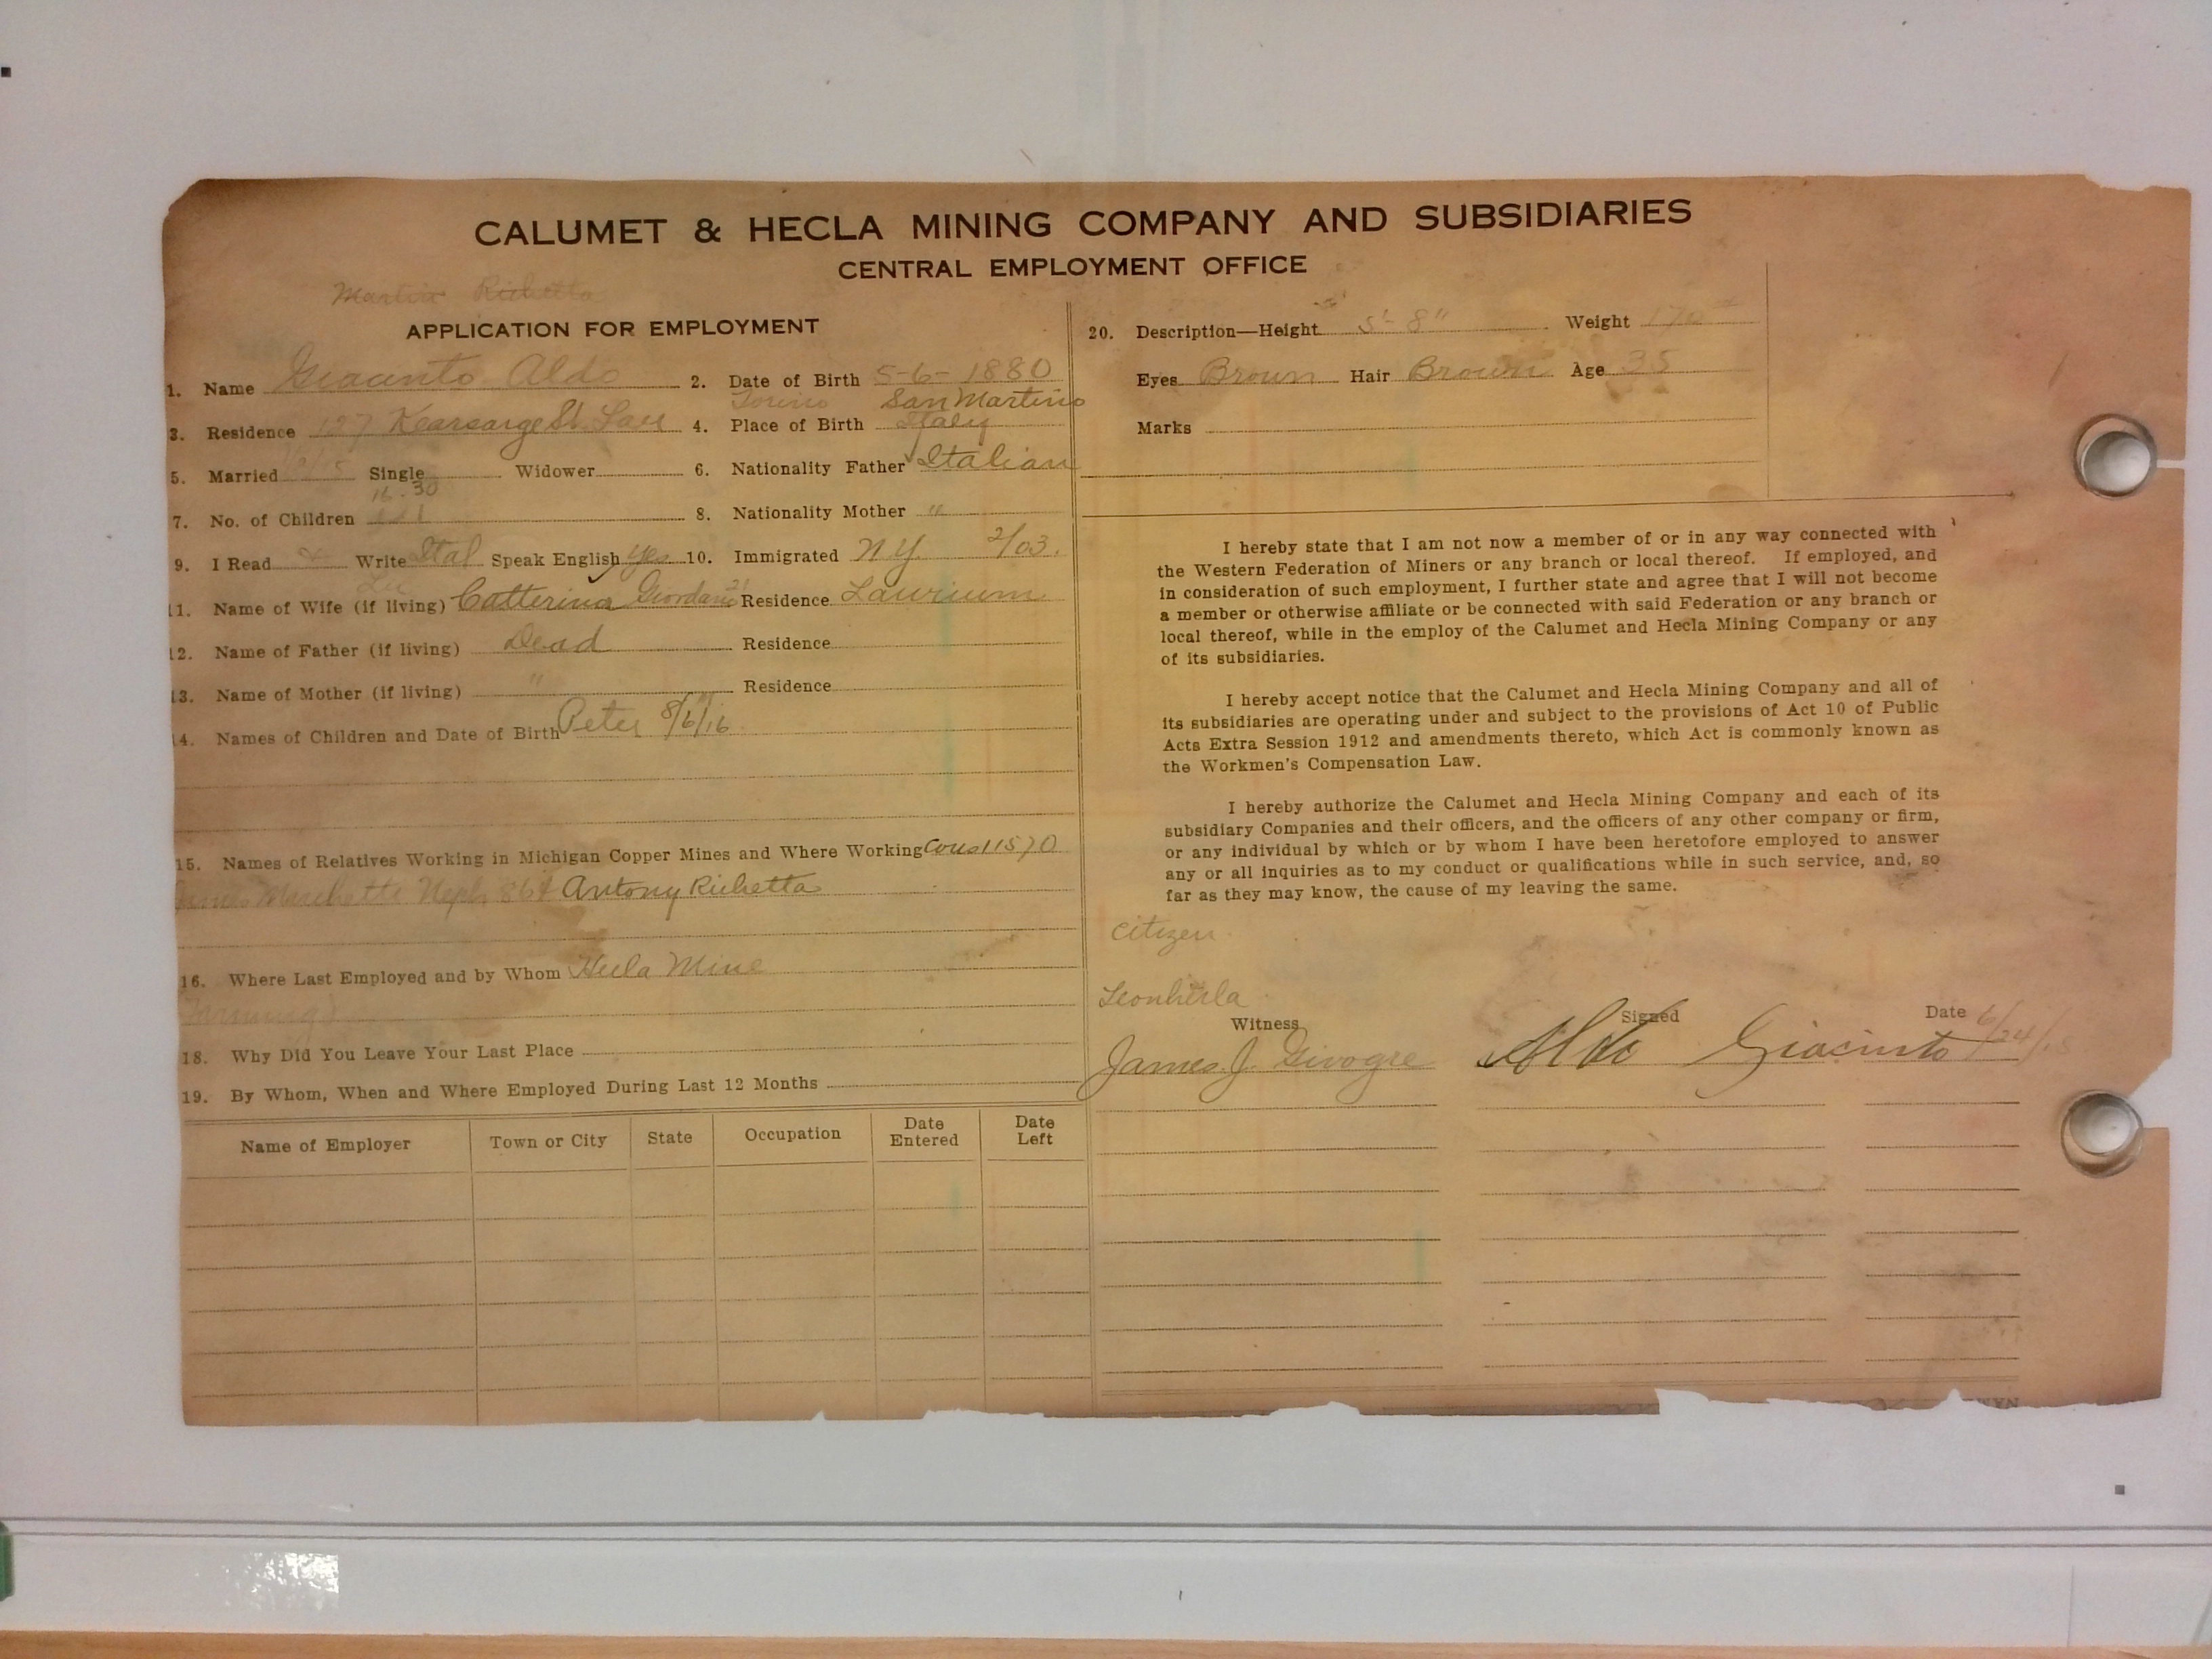 CALUMET & HECLA MINING COMPANY AND SUBSIDIARIES
CENTRAL EMPLOYMENT OFFICE
Martin Richetta
APPLICATION FOR EMPLOYMENT
1. Name Giacinto Aldo 2. Date of Birth 5-6-1880
Torino San Martino
3. Residence 127 Kearsarge St. Lau 4. Place of Birth Italy
5. Married Single Widower 6. Nationality Father Italian
16-30
7. No. of Children 1 8. Nationality Mother "
9. I Read & Write Ital Speak English yes 10. Immigrated N.Y. 2/03.
11. Name of Wife (if living) Catterina Giordano 21 Residence Laurium
12. Name of Father (if living) Dead Residence
13. Name of Mother (if living) " Residence
14. Names of Children and Date of Birth Peter 8/6/16
15. Names of Relatives Working in Michigan Copper Mines and Where Working Cous 11570
James Marchetti Neph 864 Antony Richetta
16. Where Last Employed and by Whom Hecla Mine
18. Why Did You Leave Your Last Place
19. By Whom, When and Where Employed During Last 12 Months
Name of Employer Town or City State Occupation Date Entered Date Left
20. Description—Height 5'-8" Weight 170
Eyes Brown Hair Brown Age 35
Marks
I hereby state that I am not now a member of or in any way connected with
the Western Federation of Miners or any branch or local thereof. If employed, and
in consideration of such employment, I further state and agree that I will not become
a member or otherwise affiliate or be connected with said Federation or any branch or
local thereof, while in the employ of the Calumet and Hecla Mining Company or any
of its subsidiaries.
I hereby accept notice that the Calumet and Hecla Mining Company and all of
its subsidiaries are operating under and subject to the provisions of Act 10 of Public
Acts Extra Session 1912 and amendments thereto, which Act is commonly known as
the Workmen's Compensation Law.
I hereby authorize the Calumet and Hecla Mining Company and each of its
subsidiary Companies and their officers, and the officers of any other company or firm,
or any individual by which or by whom I have been heretofore employed to answer
any or all inquiries as to my conduct or qualifications while in such service, and, so
far as they may know, the cause of my leaving the same.
citizen
Witness Signed Date 6/24/15
James J. Givogre Aldo Giacinto